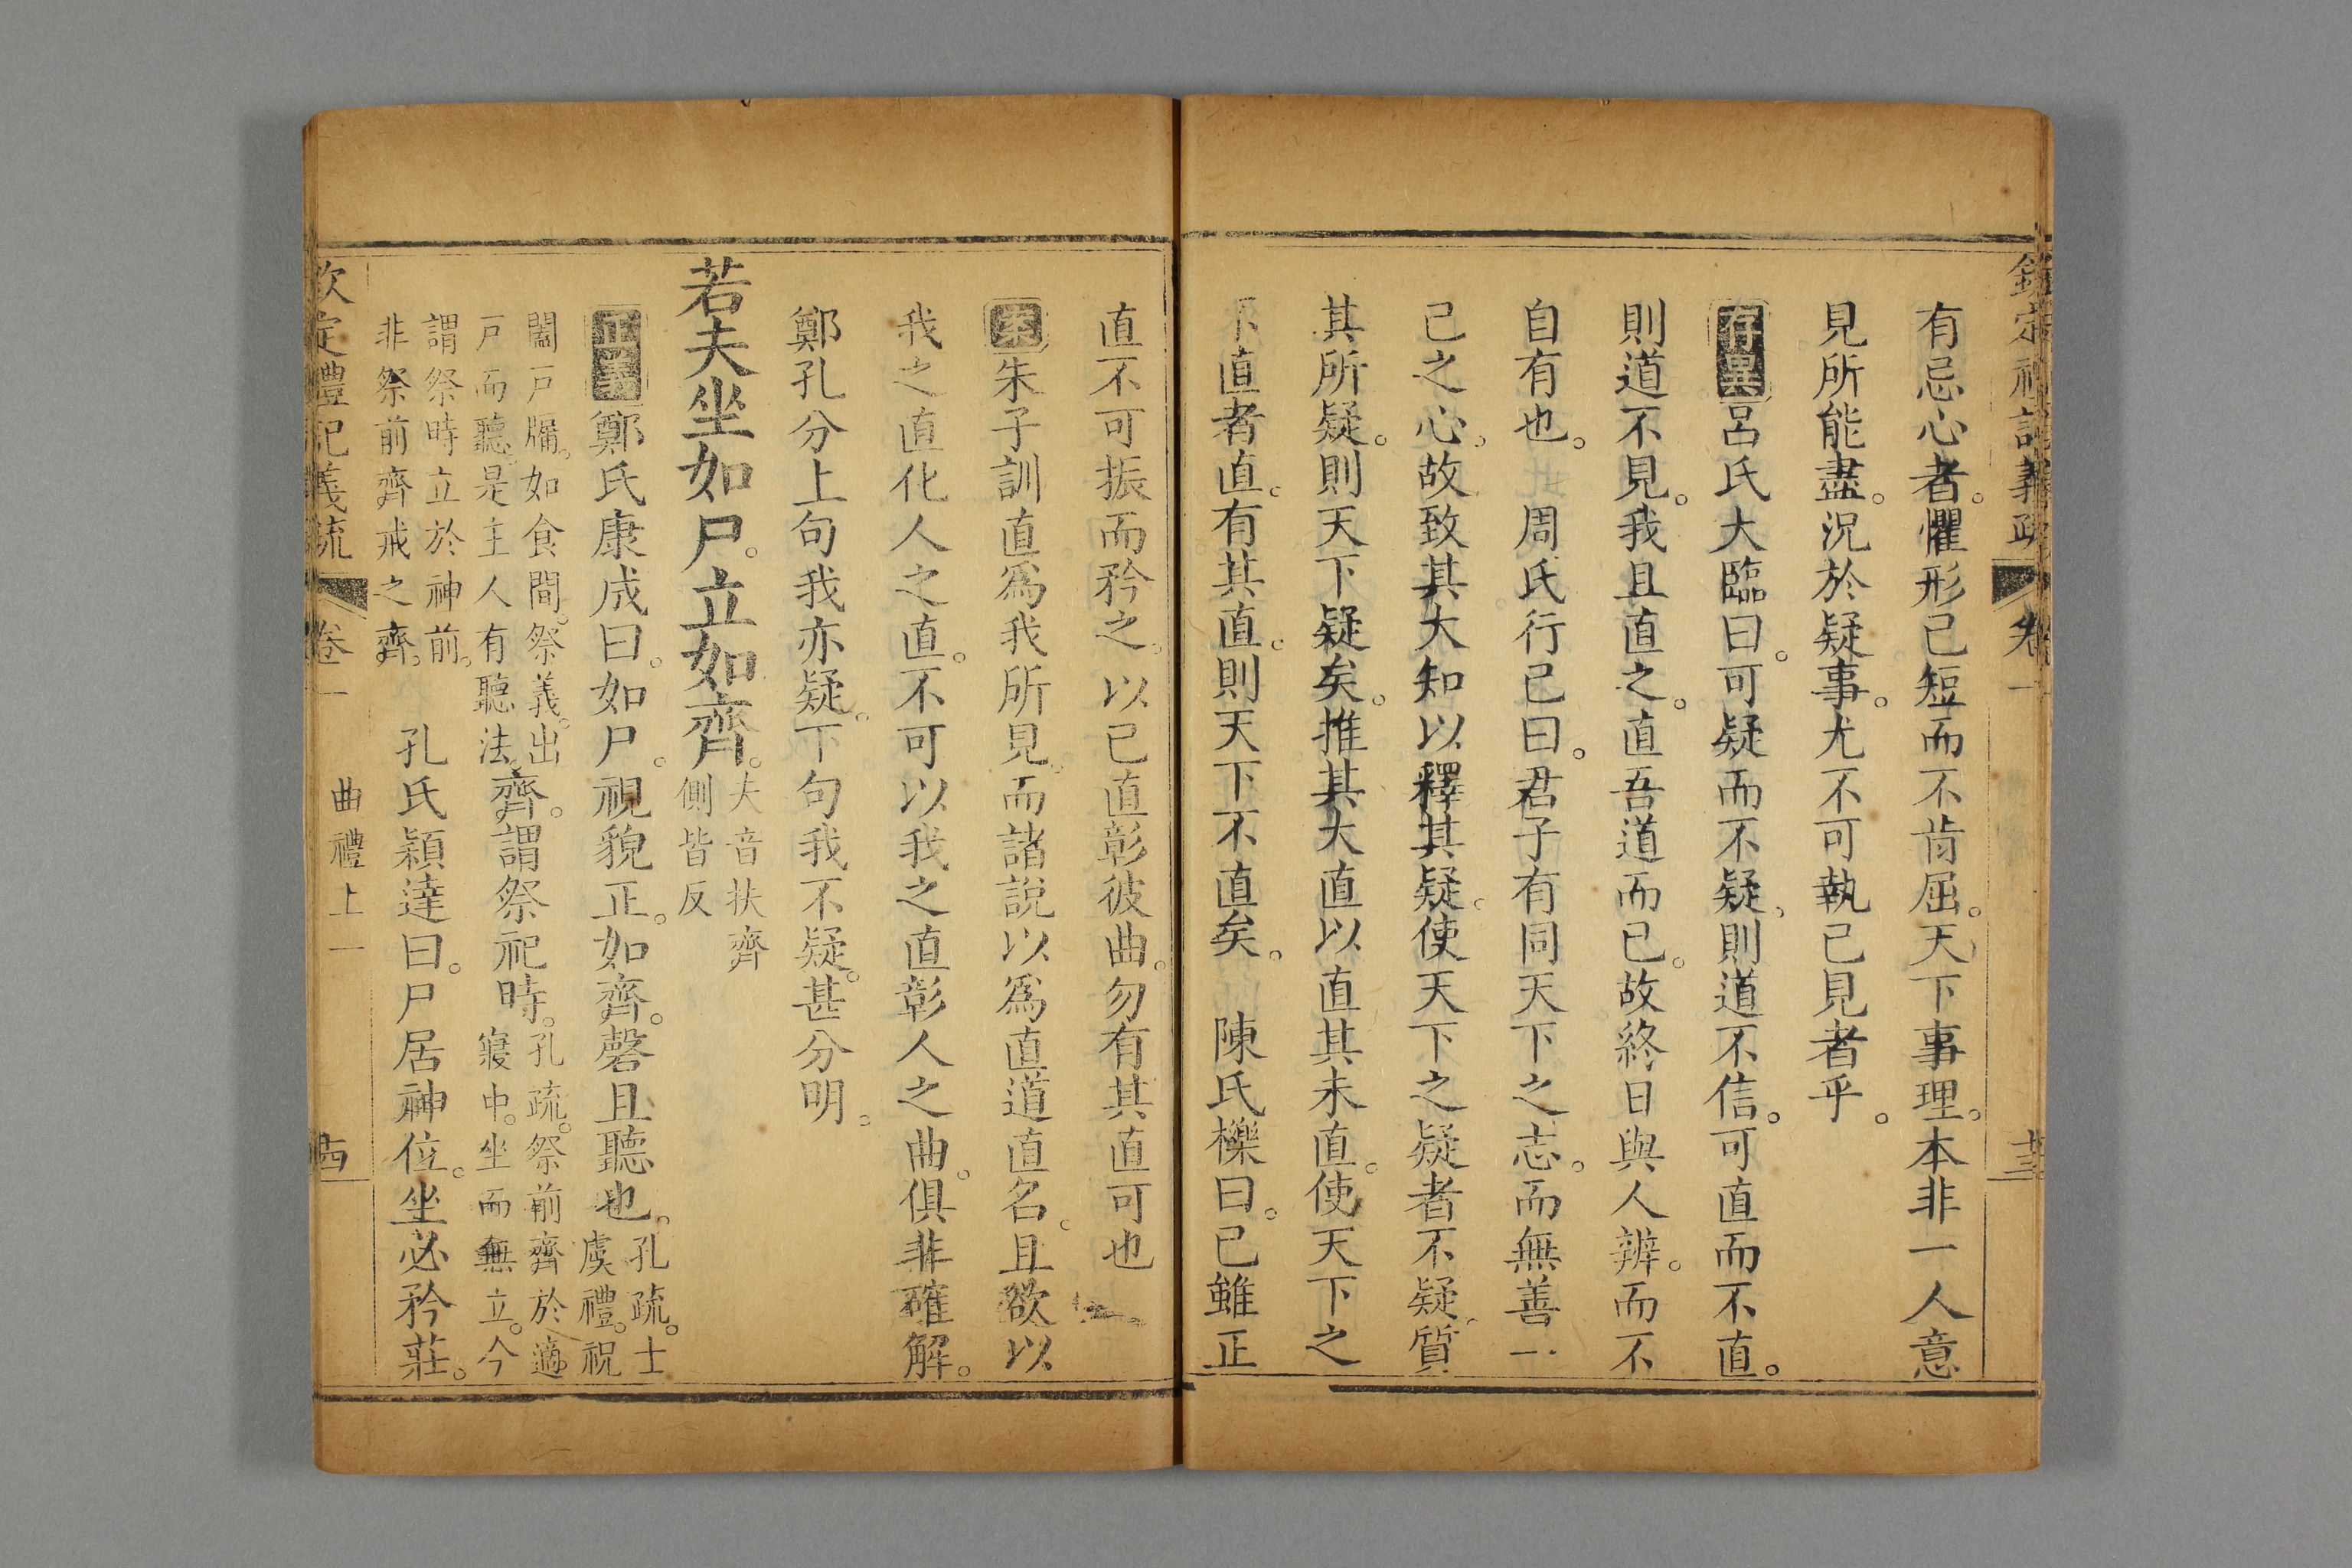 欽定禮記義疏 卷一 十三
有忌心者。懼形己短而不肯屈。天下事理。本非一人意
見所能盡。況於疑事。尤不可執己見者乎。
存異呂氏大臨曰。可疑而不疑。則道不信。可直而不直。
則道不見。我且直之。直吾道而已。故終日與人辨。而不
自有也。周氏行己曰。君子有同天下之志。而無善一
己之心。故致其大知以釋其疑。使天下之疑者不疑。質
其所疑。則天下疑矣。推其大直以直其未直。使天下之
不直者直。有其直。則天下不直矣。 陳氏櫟曰。己雖正
直不可振而矜之。以己直彰彼曲。勿有其直可也
案朱子訓直爲我所見。而諸說以爲直道直名。且欲以
我之直化人之直。不可以我之直彰人之曲。俱非確解。
鄭孔分上句我亦疑。下句我不疑。甚分明。
若夫坐如尸。立如齊。夫音扶齊
側皆反
正義鄭氏康成曰。如尸。視貌正。如齊。磬且聽也。孔疏。士
虞禮。祝
闔戸牖。如食間。祭義。出
戸而聽。是主人有聽法。齊。謂祭祀時。孔疏。祭前齊於適
寢中。坐而無立。今
謂祭時立於神前。
非祭前齊戒之齊。 孔氏穎達曰。尸居神位。坐必矜莊。
欽定禮記義疏 卷一 曲禮上一 十四